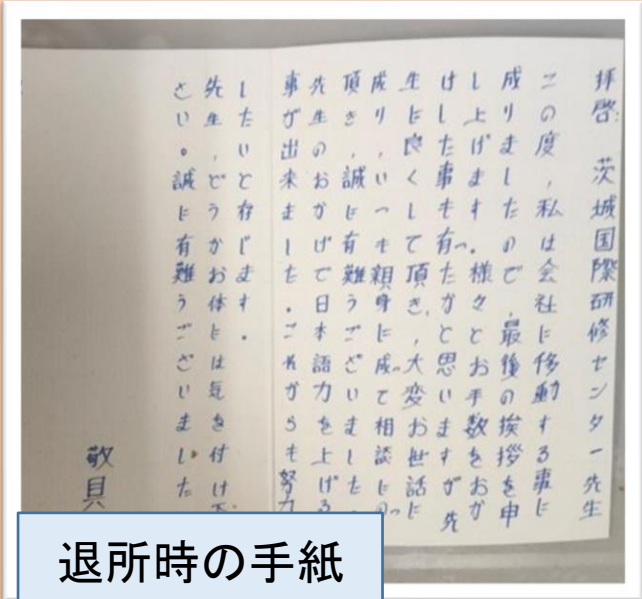 拝啓: 茨城国際研修センター先生
この度,私は会社に移動する事に
成りましたので,最後の挨拶を申
し上げます.様々とお手数をおか
けした事も有ったかと思いますが先
生に良くして頂き,大変お世話に
成り,いつも親身に成って相談にのっ
頂き,誠に有難うございました.
先生のおかげで日本語力を上げる
事が出来ました.これからも努力
したいと存じます.
先生,どうかお体には気を付け下
さい。誠に有難うございました
敬具
退所時の手紙